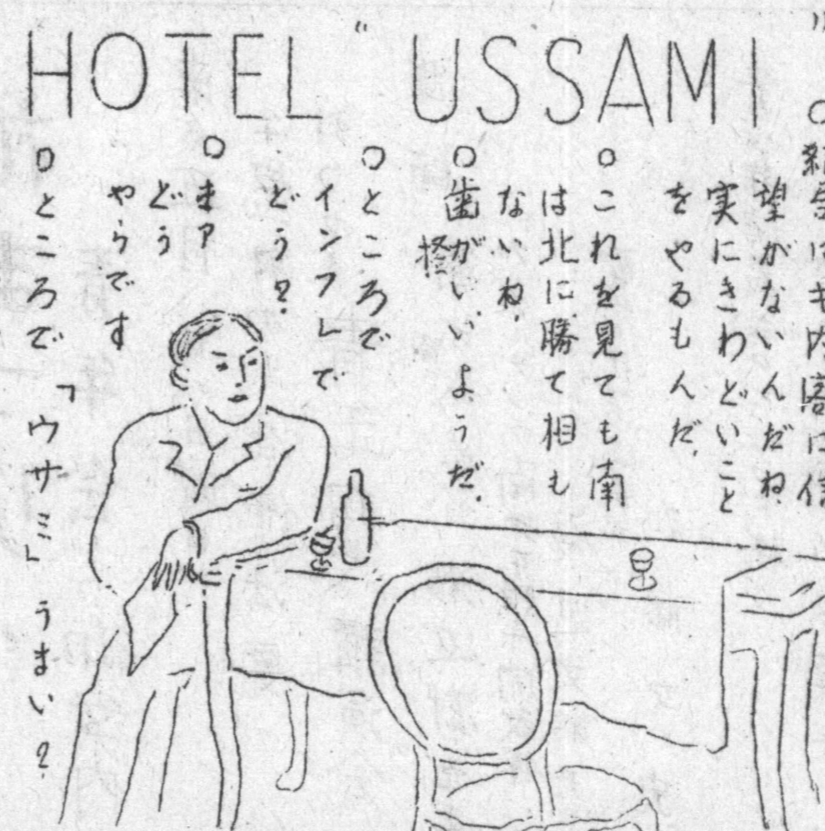 HOTEL "USSAMI"
望がないんだね、
実にきわどいこと
をやるもんだ。
○これを見ても南
は北に勝て相も
ないね、
○歯がいいようだ。
○ところで
インフレで
どう?
○まア
どう
やらです
○ところで「ウサミ」うまい?